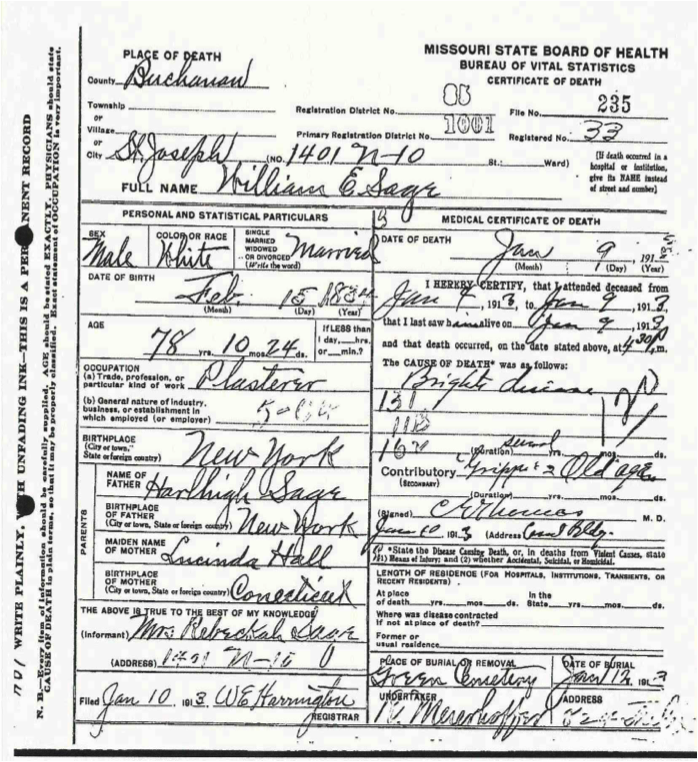 PLACE OF DEATH
County Buchanan
Township
or
Village
or
City St. Joseph (NO. 1401 N-10 St.: Ward)
FULL NAME William E. Sage
MISSOURI STATE BOARD OF HEALTH
BUREAU OF VITAL STATISTICS
CERTIFICATE OF DEATH
Registration District No. 85 File No. 235
Primary Registration District No. 1001 Registered No. 33
[If death occurred in a
hospital or institution,
give its NAME instead
of street and number]
PERSONAL AND STATISTICAL PARTICULARS
SEX
Male
COLOR OR RACE
White
SINGLE
MARRIED
WIDOWED
OR DIVORCED
(Write the word)
Married
DATE OF BIRTH
Feb. 15 1834
(Month) (Day) (Year)
AGE
78 yrs. 10 mos. 24 ds.
If LESS than
1 day,___hrs.
or___min.?
OCCUPATION
(a) Trade, profession, or
particular kind of work Plasterer
(b) General nature of industry,
business, or establishment in
which employed (or employer)
BIRTHPLACE
(City or town,
State or foreign country) New York
PARENTS
NAME OF
FATHER Harlhigh Sage
BIRTHPLACE
OF FATHER
(City or town, State or foreign country) New York
MAIDEN NAME
OF MOTHER Lucinda Hall
BIRTHPLACE
OF MOTHER
(City or town, State or foreign country) Conecticut
THE ABOVE IS TRUE TO THE BEST OF MY KNOWLEDGE
(Informant) Mrs Rebeckah Sage
(ADDRESS) 1401 N-10
Filed Jan 10 1913 WE Harrington
REGISTRAR
MEDICAL CERTIFICATE OF DEATH
DATE OF DEATH
Jan 9 191
(Month) (Day) (Year)
I HEREBY CERTIFY, that I attended deceased from
Jan 4 1913, to Jan 9, 1913,
that I last saw him alive on Jan 9, 1913
and that death occurred, on the date stated above, at 4.30 P.m.
The CAUSE OF DEATH* was as follows:
Brights disease
131
(Duration) yrs. mos. ds.
Contributory Grippe & Old age
(SECONDARY)
(Duration) yrs. mos. ds.
(Signed) C E Thomas M. D.
Jan 10, 1913 (Address) Bldg.
*State the Disease Causing Death, or, in deaths from Violent Causes, state
(1) Means of Injury; and (2) whether Accidental, Suicidal, or Homicidal.
LENGTH OF RESIDENCE (FOR HOSPITALS, INSTITUTIONS, TRANSIENTS, OR
RECENT RESIDENTS)
At place
of death yrs. mos. ds.
In the
State yrs. mos. ds.
Where was disease contracted
if not at place of death?
Former or
usual residence
PLACE OF BURIAL OR REMOVAL
Green Cemetery
DATE OF BURIAL
Jan 12, 1913
UNDERTAKER
ADDRESS
N. B.—Every item of information should be carefully supplied. AGE should be stated EXACTLY. PHYSICIANS should state
CAUSE OF DEATH in plain terms, so that it may be properly classified. Exact statement of OCCUPATION is very important.
WRITE PLAINLY, WITH UNFADING INK—THIS IS A PERMANENT RECORD